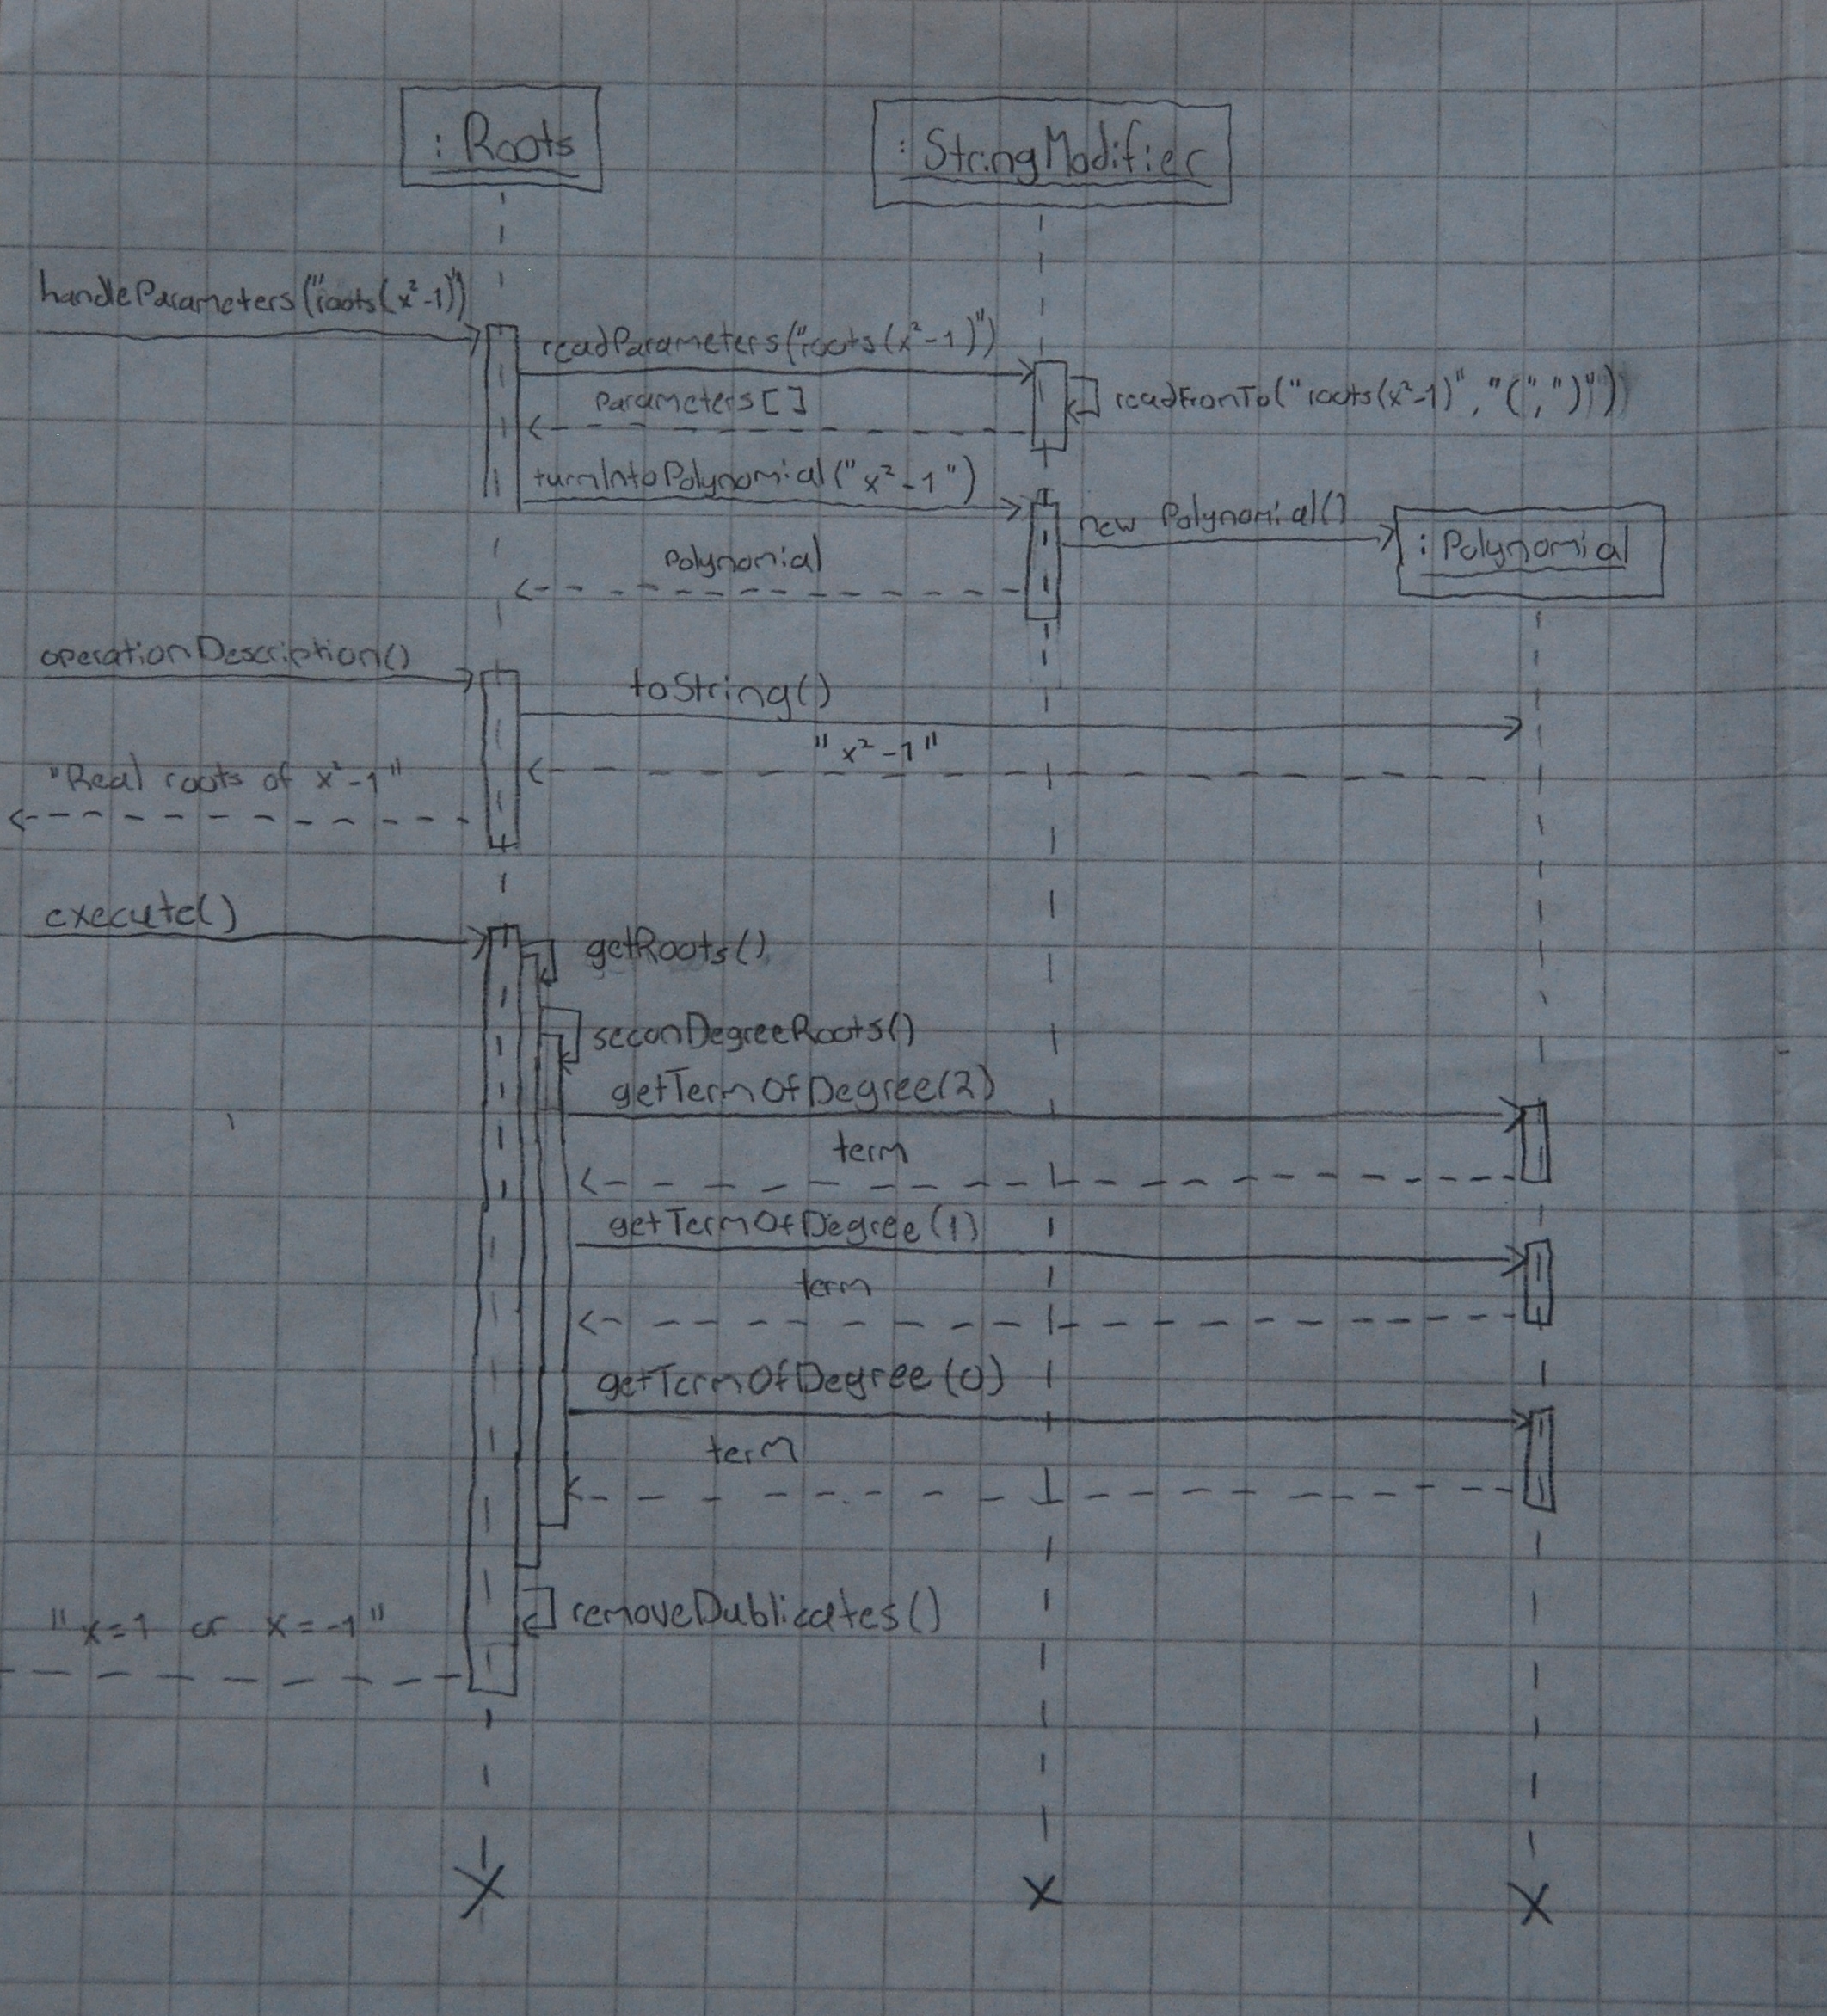 : Roots
: StringModifier
handleParameters("roots(x²-1)")
readParameters("roots(x²-1)")
Parameters[]
readFromTo("roots(x²-1)", "(", ")")
turnIntoPolynomial("x²-1")
new Polynomial()
: Polynomial
Polynomial
operationDescription()
toString()
"x²-1"
"Real roots of x²-1"
execute()
getRoots()
seconDegreeRoots()
getTermOfDegree(2)
term
getTermOfDegree(1)
term
getTermOfDegree(0)
term
removeDublicates()
"x=1 or x=-1"